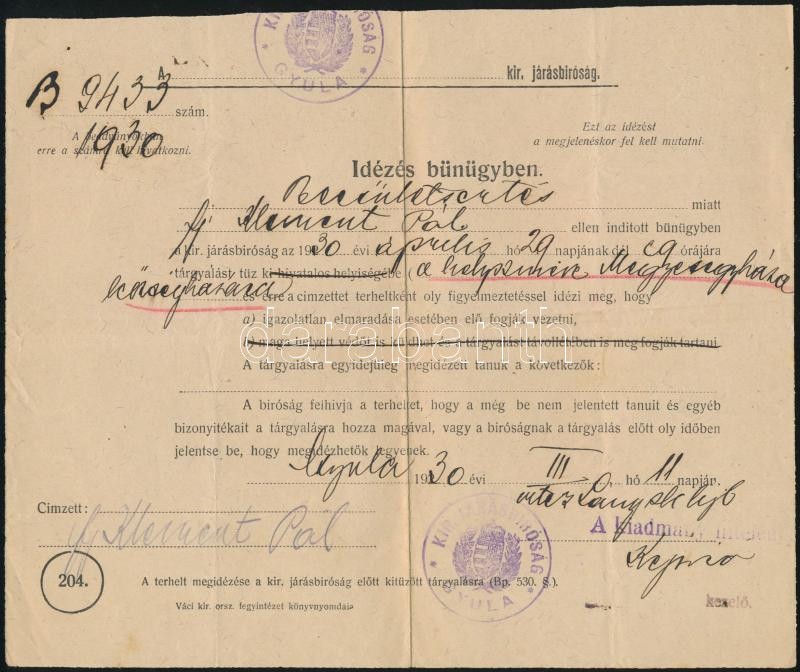 KIR. JÁRÁSBIRÓSÁG * GYULA *
A kir. járásbiróság.
B 9433 szám.
1930
A beadványokban
erre a számra kell hivatkozni.
Ezt az idézést
a megjelenéskor fel kell mutatni.
Idézés bünügyben.
Becsületsértés miatt
ifj Klement Pál ellen inditott bünügyben
a kir. járásbiróság az 1930 évi április hó 29 napjának dél e 9 órájára
tárgyalást tüz ki hivatalos helyiségébe (a helyszinére Megyesegyháza
községházára
és erre a cimzettet terheltként oly figyelmeztetéssel idézi meg, hogy
a) igazolatlan elmaradása esetében elő fogják vezetni,
b) maga helyett védőt is küldhet és a tárgyalást távollétében is meg fogják tartani
A tárgyalásra egyidejüleg megidézett tanuk a következők:
A biróság felhivja a terheltet, hogy a még be nem jelentett tanuit és egyéb
bizonyitékait a tárgyalásra hozza magával, vagy a biróságnak a tárgyalás előtt oly időben
jelentse be, hogy megidézhetők legyenek.
Gyula 1930 évi III hó 11 napján.
vitéz
Cimzett:
A kiadmány hiteléül
ifj Klement Pál
KIR. JÁRÁSBIRÓSÁG * GYULA *
kezelő.
204.
A terhelt megidézése a kir. járásbiróság előtt kitüzött tárgyalásra (Bp. 530. §.).
Váci kir. orsz. fegyintézet könyvnyomdája
darabanth